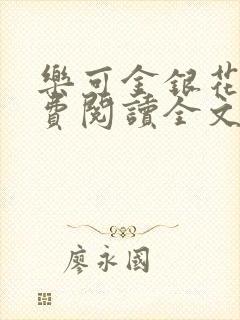 樂可金銀花
費閱讀全文
廖永國